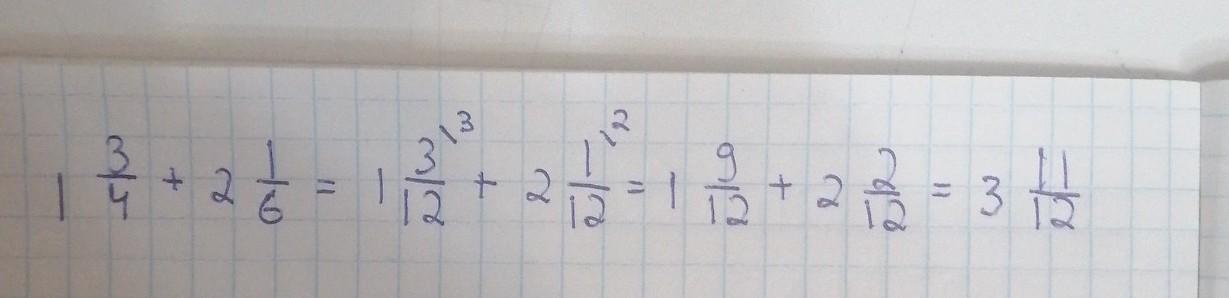 1 3/4 + 2 1/6 = 1 3\3/12 + 2 1\2/12 = 1 9/12 + 2 2/12 = 3 11/12